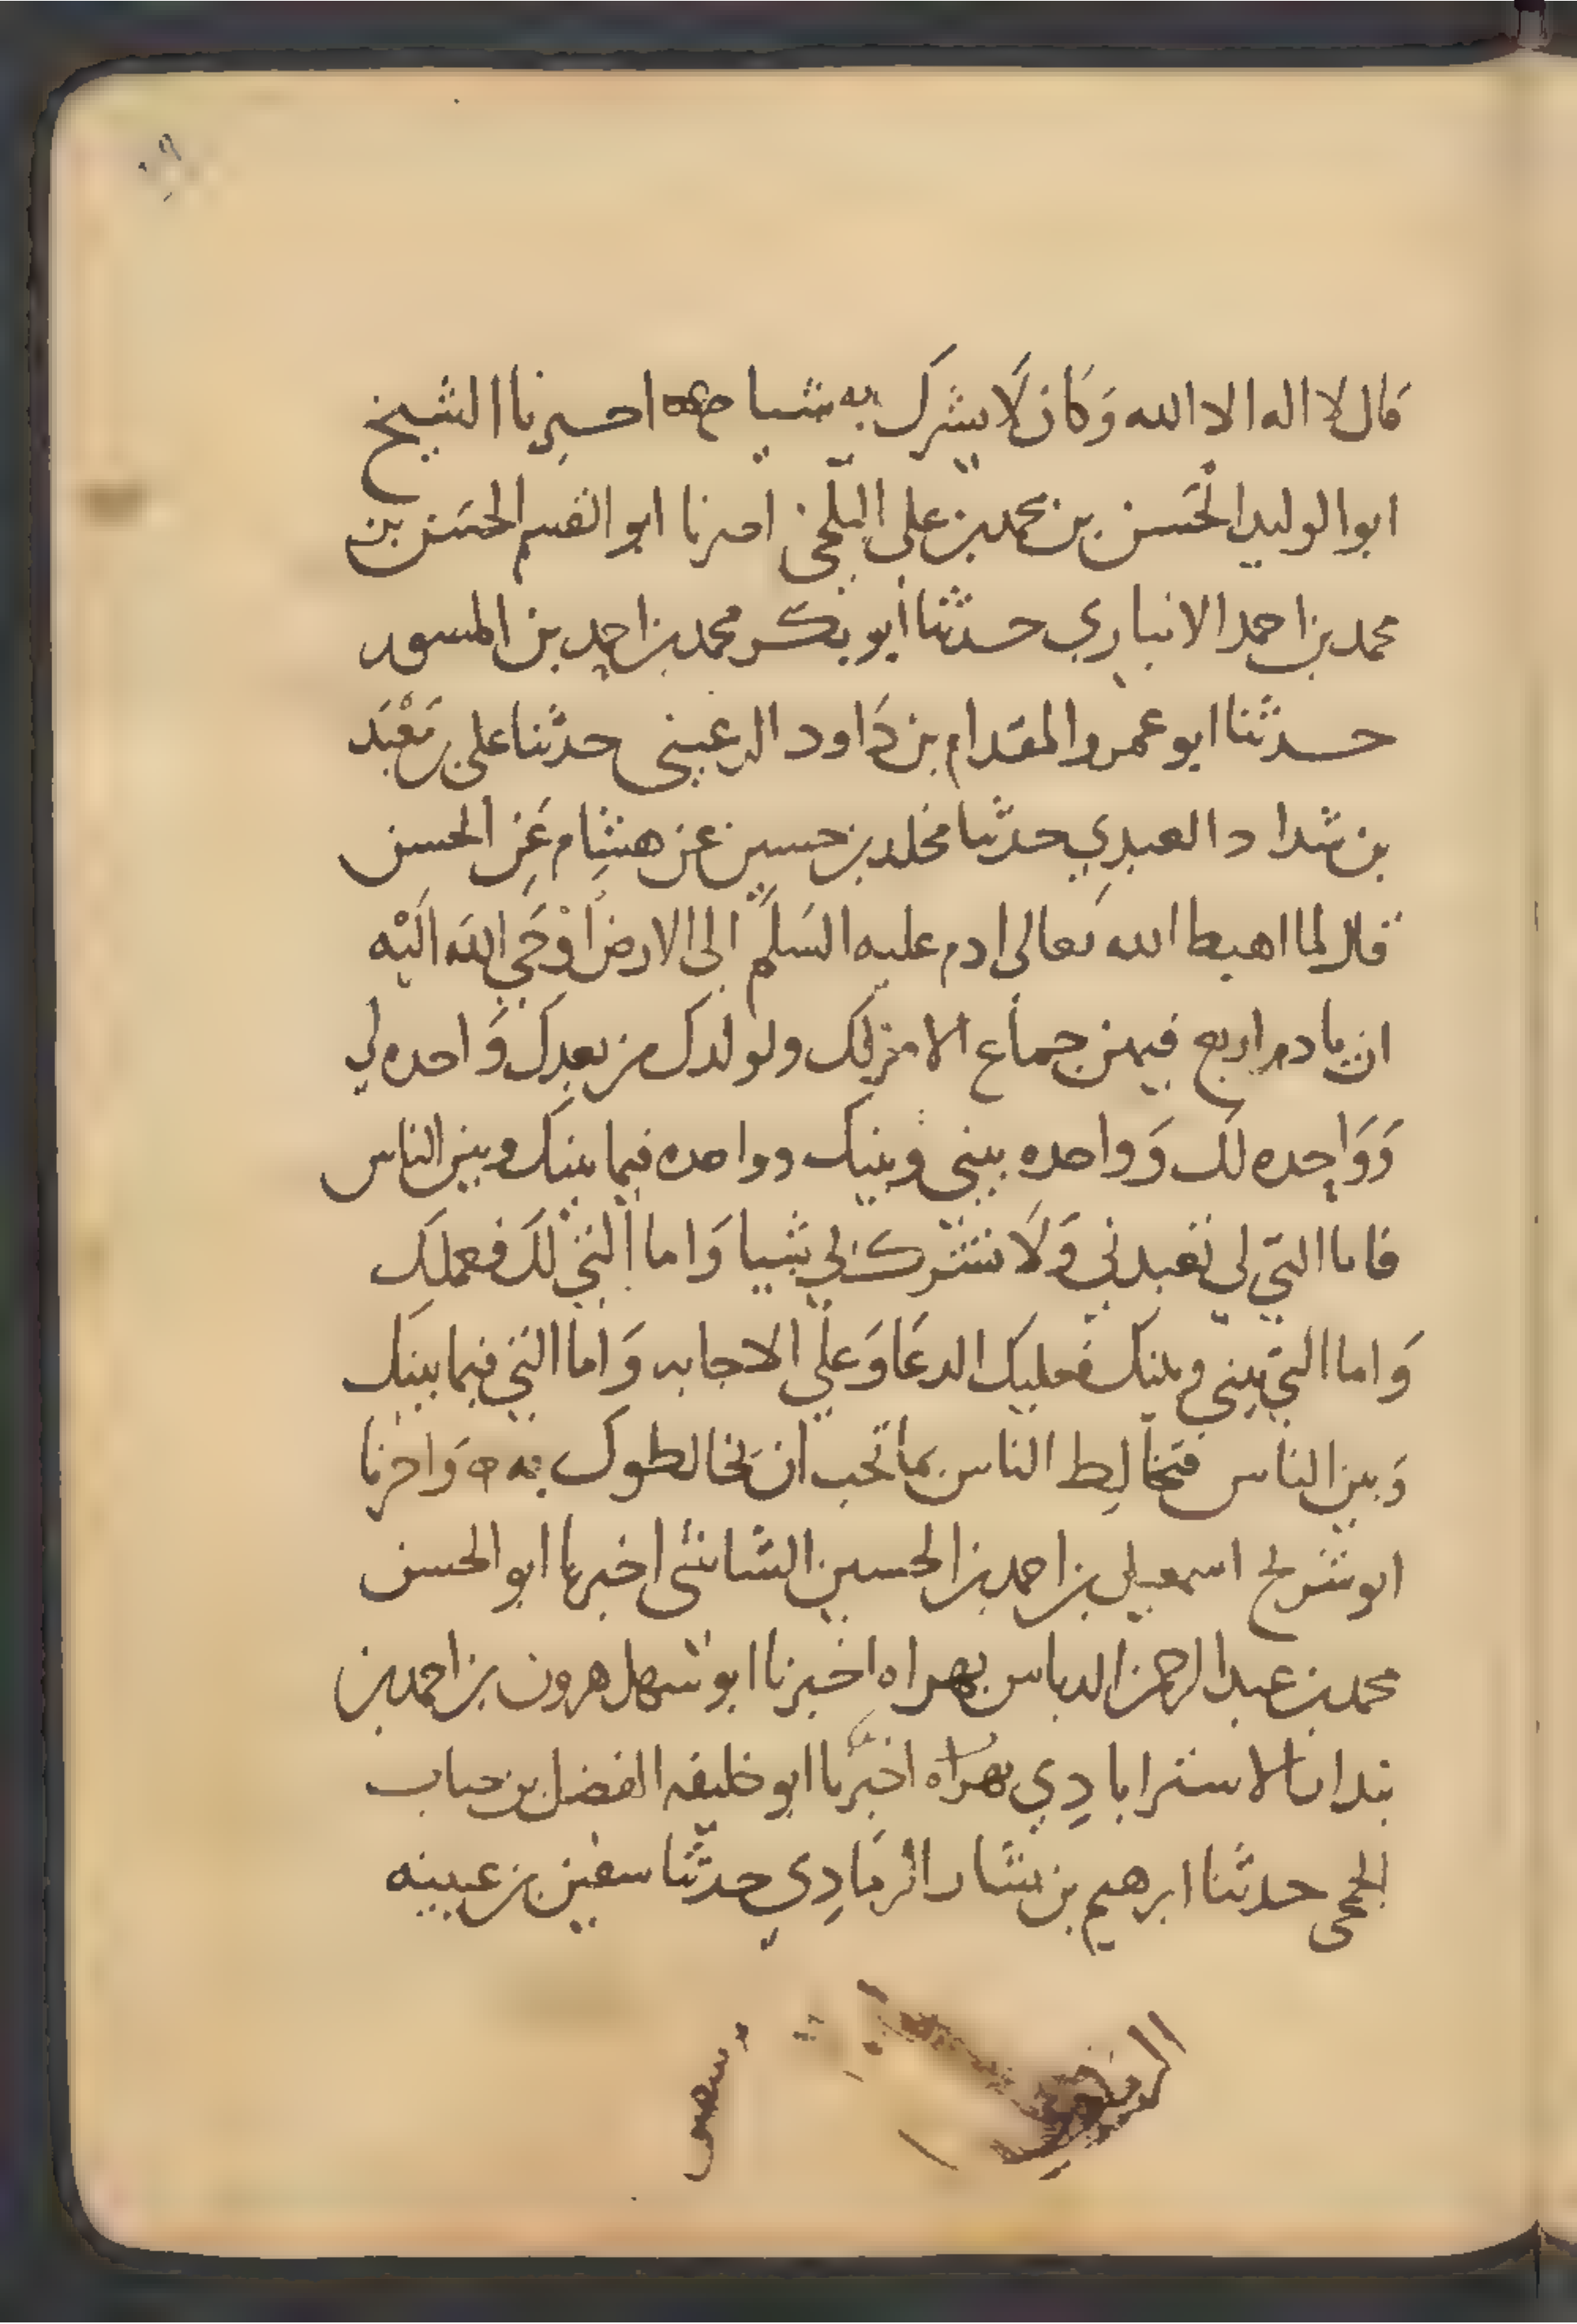 قال لا اله الا الله وَكان لَا يشرك به شيا اخبرنا الشيخ
ابو الوليد الحَسن بن محمد بن على البلخى اخبرنا ابو القسم الحسَن بن
محمد بن احمد الانباري حدثنا أبو بكر محمد بن احمد بن المسور
حدثنا ابو عمرو المقدام بن دَاود الرعينى حدثنا على بن مَعْبَد
بن شداد العبدِي حدثنا مخلد بن حسين عن هشام عَنِ الحسن
قال لما اهبط الله تعالى ادم عليه السَلم الى الارض أوْحَي الله اليْه
ان يا دم اربع فيهن جماع الامر لك ولولدك من بعدك وَاحده لي
وَوَاحِده لك وَواحده بينى وبينك وواحده فيما بينك وبين الناس
فاما التي لي تعبدني وَلَا تشرك بي شيا وَاما التي لكَ فعملك
وَاما التي بينى وبينك فعليك الدعَا وَعلي الاجابه وَاما التي فيما بينك
وَبين الناس فتخالِط الناس بما تحب ان تخالطوك به وَاخبرنا
ابو شريح اسمعيل بن احمد بن الحسين الشاشى اخبرنا ابو الحسن
محمد بن عبد الرحمن الدباس بهراه اخبرنا ابو سهل هرون بن احمد بن
بندار الاستراباديِ بهَراه اخبَرنا ابو خليفه الفضل بن حباب
الجمحى حدثنا ابرهيم بن بشار الرمَادِي حدثنا سفين بن عيينه